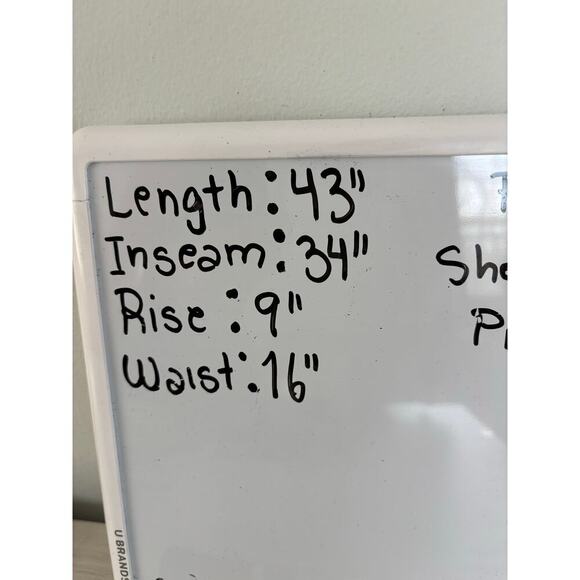 Length: 43"
Inseam: 34"
Rise: 9"
Waist: 16"
U BRANDS